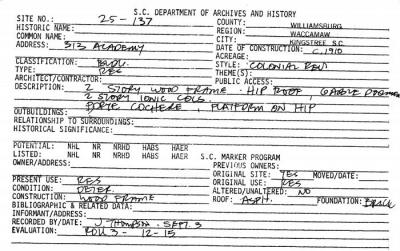 S.C. DEPARTMENT OF ARCHIVES AND HISTORY
SITE NO.: 25-137
COUNTY: WILLIAMSBURG
HISTORIC NAME:
REGION: WACCAMAW
COMMON NAME:
CITY: KINGSTREE S.C.
ADDRESS: 513 ACADEMY
DATE OF CONSTRUCTION: C. 1910
ACREAGE:
CLASSIFICATION: BLDG.
STYLE: COLONIAL REV.
TYPE: RES
THEME(S):
ARCHITECT/CONTRACTOR:
PUBLIC ACCESS:
DESCRIPTION: 2 STORY WOOD FRAME. HIP ROOF, GABLE DORMER
2 STORY IONIC COLS.
PORTE COCHERE, PLATFORM ON HIP
OUTBUILDINGS:
RELATIONSHIP TO SURROUNDINGS:
HISTORICAL SIGNIFICANCE:
POTENTIAL: NHL NR NRHD HABS HAER
LISTED: NHL NR NRHD HABS HAER
S.C. MARKER PROGRAM
OWNER/ADDRESS:
PREVIOUS OWNERS:
ORIGINAL SITE: YES MOVED/DATE:
PRESENT USE: RES
ORIGINAL USE: RES
CONDITION: DETER.
ALTERED/UNALTERED: NO
CONSTRUCTION: WOOD FRAME
ROOF: ASPH. FOUNDATION: BRICK
BIBLIOGRAPHIC & RELATED DATA:
INFORMANT/ADDRESS:
RECORDED BY/DATE: J THOMPSON. SEPT. 3
EVALUATION: ROLL 3 - 12-15